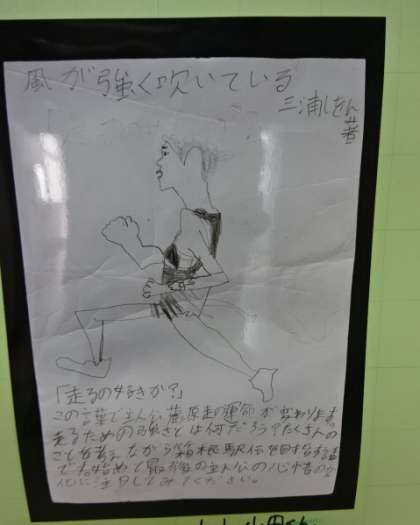 風が強く吹いている
三浦しをん
著
「走るの好きか?」
この言葉で主人公 蔵原走の運命が変わります。
走るための強さとは何だろう?たくさんの
ことを考えながら箱根駅伝を目指す物語
です。始めと最後の主人公の心情の変
化に注目してみてください。